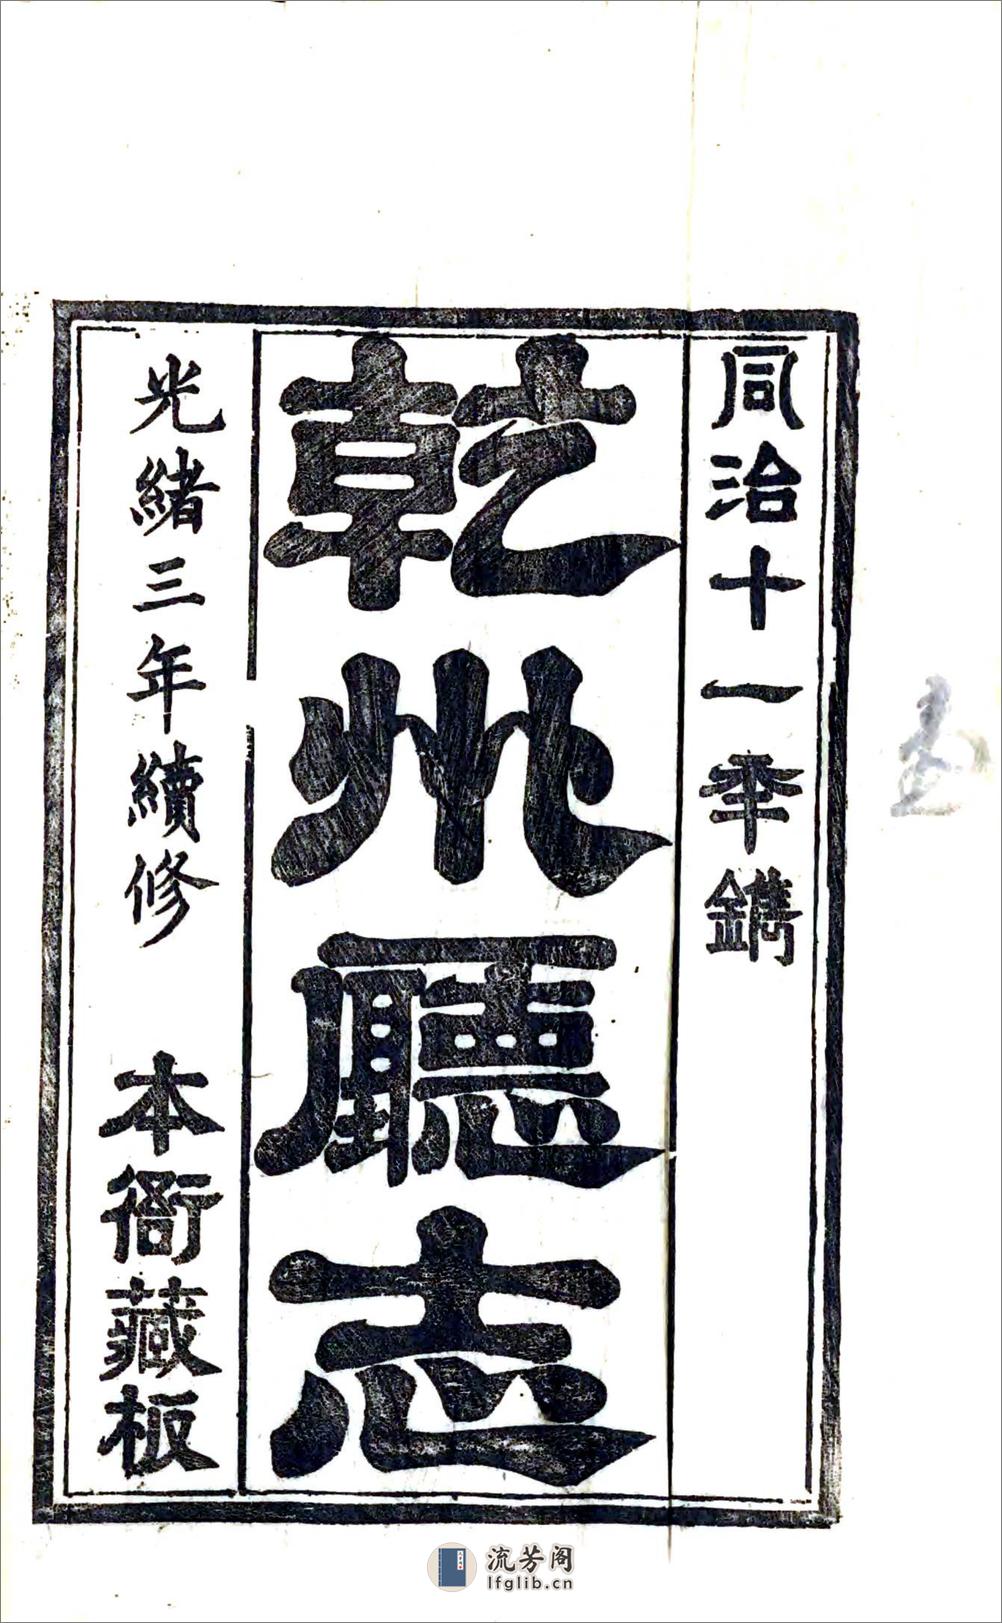 同治十一季鐫
乾州廳志
光緒三年續修
本衙藏板
流芳阁
lfglib.cn